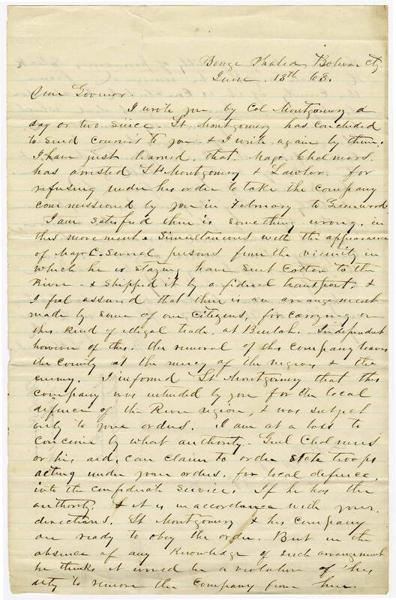 Bolivar Cty
June 18th 63.
Dear Governor
I wrote you by Col Montgomery a
day or two since. Lt. Montgomery has concluded
to send courier to you & I write again by them.
I have just learned that Majr. Chalmers
has arrested Lts Montgomery & Lawler for
refusing under his order to take the company
commissioned by you in February to
I am satisfied there is something wrong in
this movement. Simultaneous with the appearance
of Majr C. several persons from the vicinity in
which he is staying have sent Cotton to the
River & shipped it by a federal transport, &
I feel assured that there is an arrangement
made by some of our citizens, for carrying on
this kind of illegal trade at Beulah. Independent
however of this. the removal of this company leaves
the County at the mercy of the negroes & the
enemy. I informed Lt Montgomery that this
company was intended by you for the local
defence of the River region, & was subject
only to your orders. I am at a loss to
conceive by what authority. Genl Chalmers
or his aid, can claim to order state troops
acting under your orders, for local defence,
into the confederate service. If he has the
authority & it is in accordance with your
directions. Lt Montgomery & his company
are ready to obey the order. But in the
absence of any knowledge of such arrangement
he thinks it would be a violation of his
duty to remove the company from here.